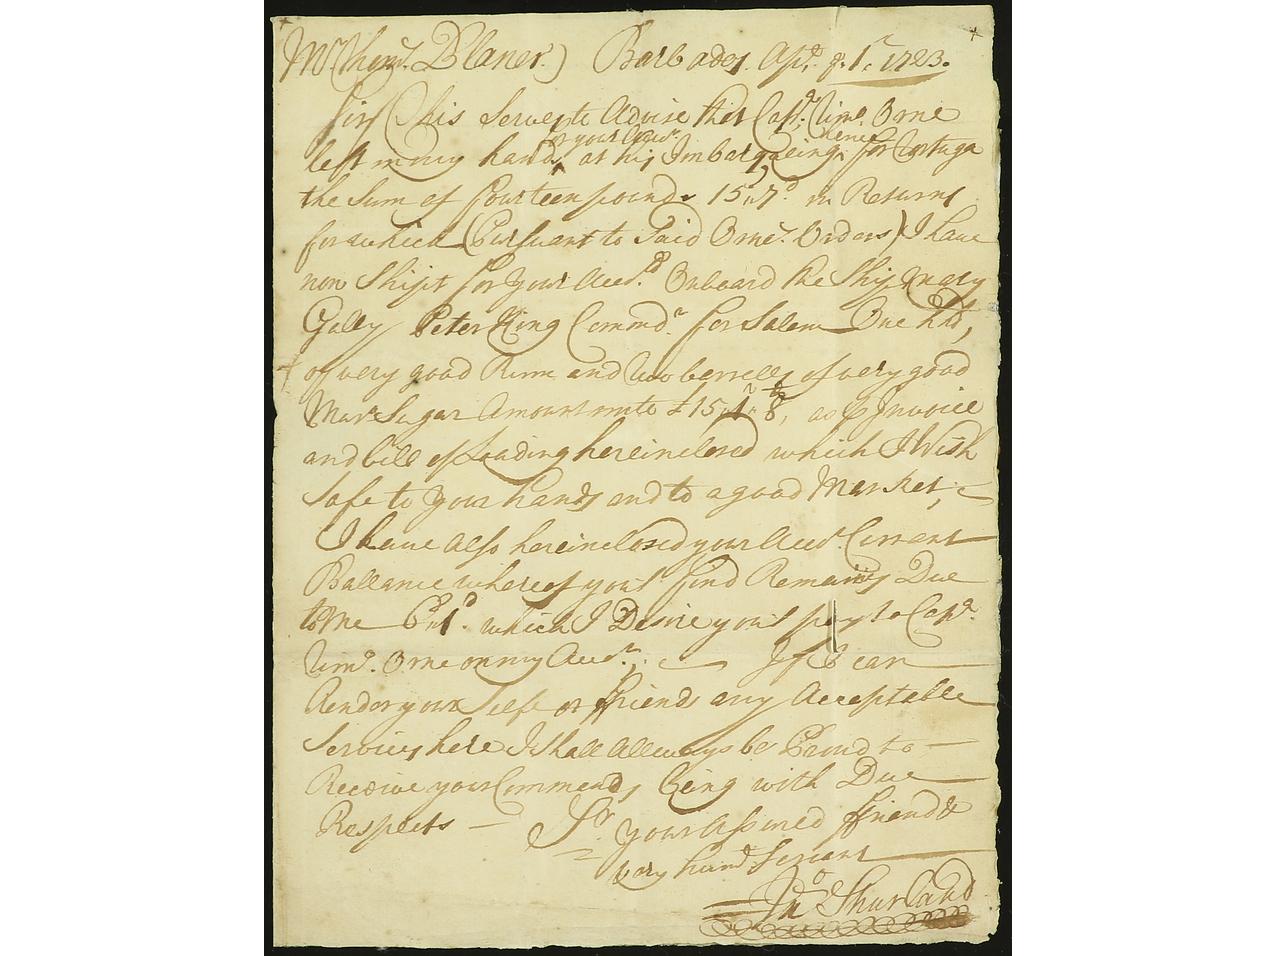 Mr Blaner) Barbados. Apr. ye. 1r 1723.
Sir This Serves to Advise that Capt. Timo. Orne
for your Acco. hence
left in my hands at his Imbarqueing for Tortuga
the Sum of fourteen pounds 15„7d in Returns
for which (Pursuant to Said Orne's. Orders) I have
now Shipt for Your Acco. Onboard the Ship Mary
Gally Peter King Comondr. for Salem One hhd,
of very good Rum and two berrells of very good
Mus Sugar Amounts unto £15„1„8, as P Invoice
and bill of Loading hereinclosed which I Wish
Safe to Your hands and to a good Market,
I have also hereinclosed your Acco. Current
Ballance whereof you'l find Remains Due
to Me 6„1d. which I Desire you'l pay to Capt.
Timo. Orne on my Acco., If I can
Render your Selfe or ffriends any Acceptable
Services here I shall Allways be Proud to
Receive your Commands being with Due
Respects Sr. your Assured ffriend &
Very humb Servant
Jno Shurland